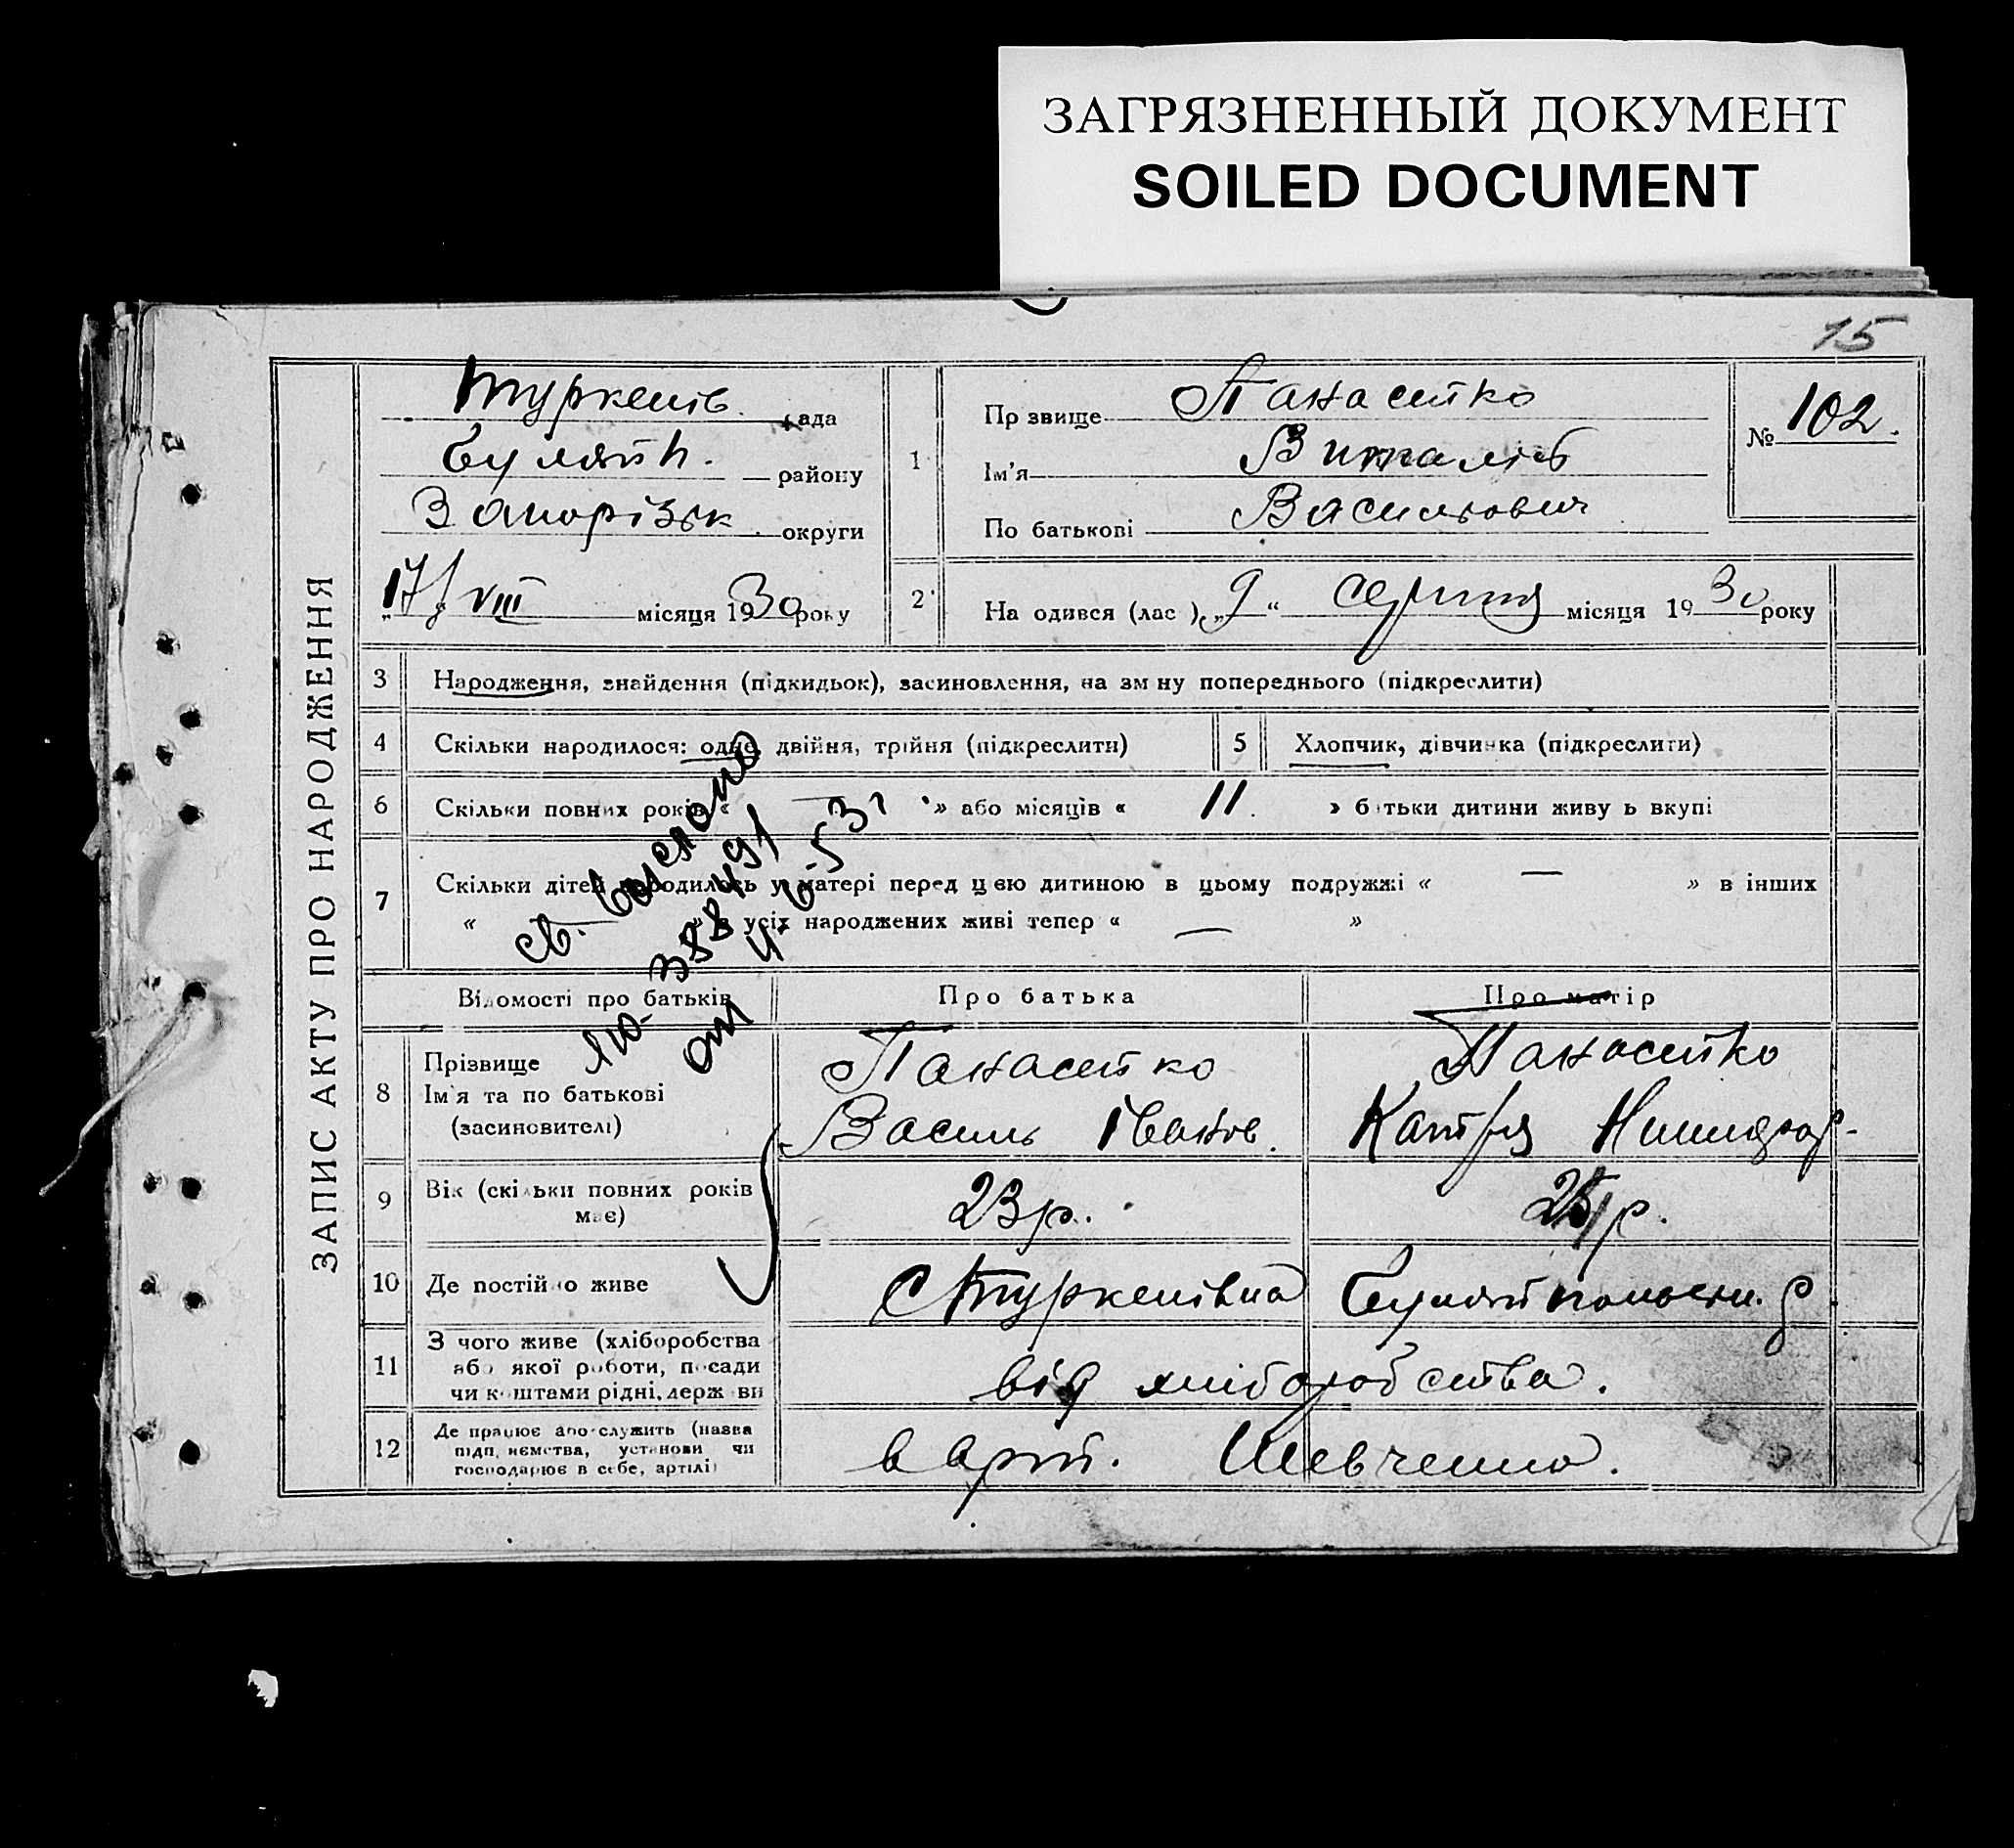 ЗАГРЯЗНЕННЫЙ ДОКУМЕНТ
SOILED DOCUMENT
15
ЗАПИС АКТУ ПРО НАРОДЖЕННЯ
Туркенів. рада
Гуляйп. району
Запорізьк округи
17/VIII місяця 1930 року
1
Пр звище Панасейко
Ім'я Виталій
По батькові Васильович
№ 102.
2
На одився (лас ) „9“ серпня місяця 1930 року
3 Народження, знайдення (підкидьок), засиновлення, на зм ну попереднього (підкреслити)
4 Скільки народилося: одне, двійня, трійня (підкреслити)
5 Хлопчик, дівчинка (підкреслити)
6 Скільки повних років « — » або місяців « 11. » б тьки дитини живу ь вкупі
7 Скільки дітей народилось у матері перед цією дитиною в цьому подружжі « — » в інших
« » в усіх народжених живі тепер « — »
св. выслано
ЯЮ- 388491
от 4-6-53г
Відомості про батьків
Про батька
Про матір
8 Прізвище
Ім'я та по батькові
(засиновителі)
Панасейко
Василь Іванов.
Панасейко
Катря
9 Вік (скільки повних років
має)
23 р.
25 р.
10 Де постійно живе
С Туркенівка Гуляйпольськ. р
11 З чого живе (хліборобства
або якої роботи, посади
чи коштами рідні, держ ви
від хліборобства.
12 Де працює або служить (назва
підп иємства, установи чи
господарює в себе, артілі)
в арт. Шевченко.